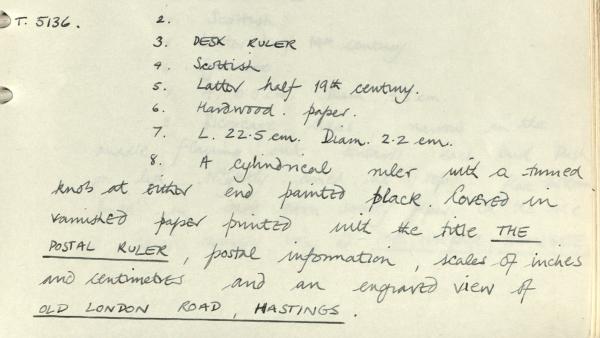 T. 5136.
2.
3. DESK RULER
4. Scottish
5. Latter half 19th century.
6. Hardwood. paper.
7. L. 22.5 cm. Diam. 2.2 cm.
8. A cylindrical ruler with a turned
knob at either end painted black. Covered in
varnished paper printed with the title THE
POSTAL RULER, postal information, scales of inches
and centimetres and an engraved view of
OLD LONDON ROAD, HASTINGS.